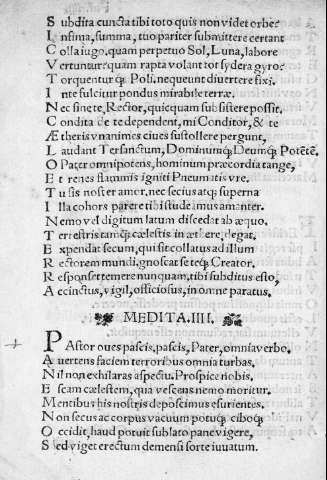 Subdita cuncta tibi toto quis non videt orbe?
Insima, summa, tuo pariter submittere certant
Colla iugo. quam perpetuo Sol, Luna, labore
Vertuntur: quam rapta volant tot sydera gyro:
Torquentur q; Poli, nequeunt divertere fixi.
Inte fulcitur pondus mirabile terræ.
Nec sine te, Rector, quicquam subsistere possit.
Condita de te dependent, mi Conditor, & te
Ætheris vnanimes ciues sustollere pergunt,
Laudant Tersanctum, Dominumq; Deumq; Potētē.
O Pater omnipotens, hominum præcordia tange,
Et renes flammis igniti Pneumatis vre.
Tu sis noster amor. nec secius atq; superna
Illa cohors parere tibi studeamus amanter.
Nemo vel digitum latum discedat ab æquo.
Terrestris tanq̃ cælestis in æthere, degat.
Expendat secum, qui sit collatus ad illum
Rectorem mundi. gnoscat se teq; Creator.
Responset temere nunquam. tibi subditus esto,
Accinctus, vigil, officiosus, in omne paratus.
MEDITA. IIII.
PAstor oues pascis, pascis, Pater, omnia verbo.
Auertens faciem terroribus omnia turbas.
Nil non exhilaras aspectu. Prospice nobis.
Escam cælestem, qua vescens nemo moritur.
Mentibus his nostris deposcimus esurientes.
Non secus ac corpus vacuum potuq; ciboq;
Occidit, haud potuit sublato pane vigere,
Sed viget erectum demensi sorte iuuatum.